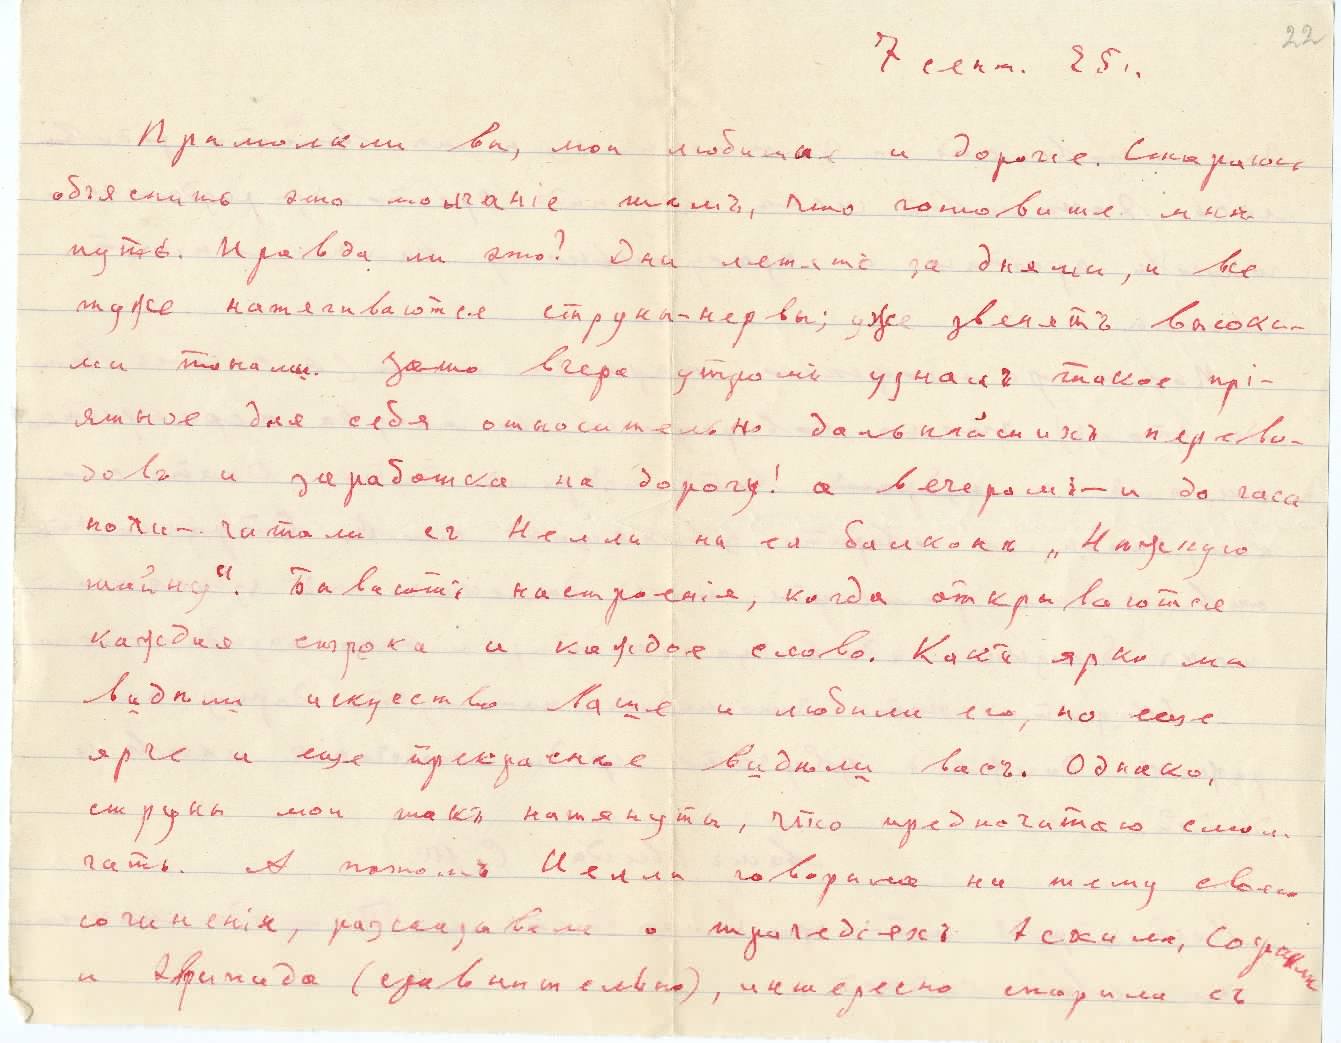 22
7 сент. 25 г.
Примолкли вы, мои любимые и дорогіе. Стараюсь
объяснить это молчаніе тѣмъ, что готовите мнѣ
путь. Правда ли это? Дни летятъ за днями, и все
туже натягиваются струны-нервы; уже звенятъ высоки-
ми тонами. Зато вчера утромъ узналъ такое прі-
ятное для себя относительно дальнѣйшихъ перево-
довъ и заработка на дорогу! а вечеромъ – и до часа
ночи – читали съ Нелли на ея балконѣ „Нѣжную
тайну". Бываютъ настроенія, когда открываются
каждая строка и каждое слово. Какъ ярко мы
видѣли искусство ваше и любили его, но еще
ярче и еще прекраснѣе видѣли васъ. Однако,
струны мои такъ натянуты, что предпочитаю смол-
чать. А потомъ Нелли говорила на тему своего
сочиненія, разсказывала о трагедіяхъ Эсхила, Софокла
и Эврипида (сравнительно), интересно спорила съ